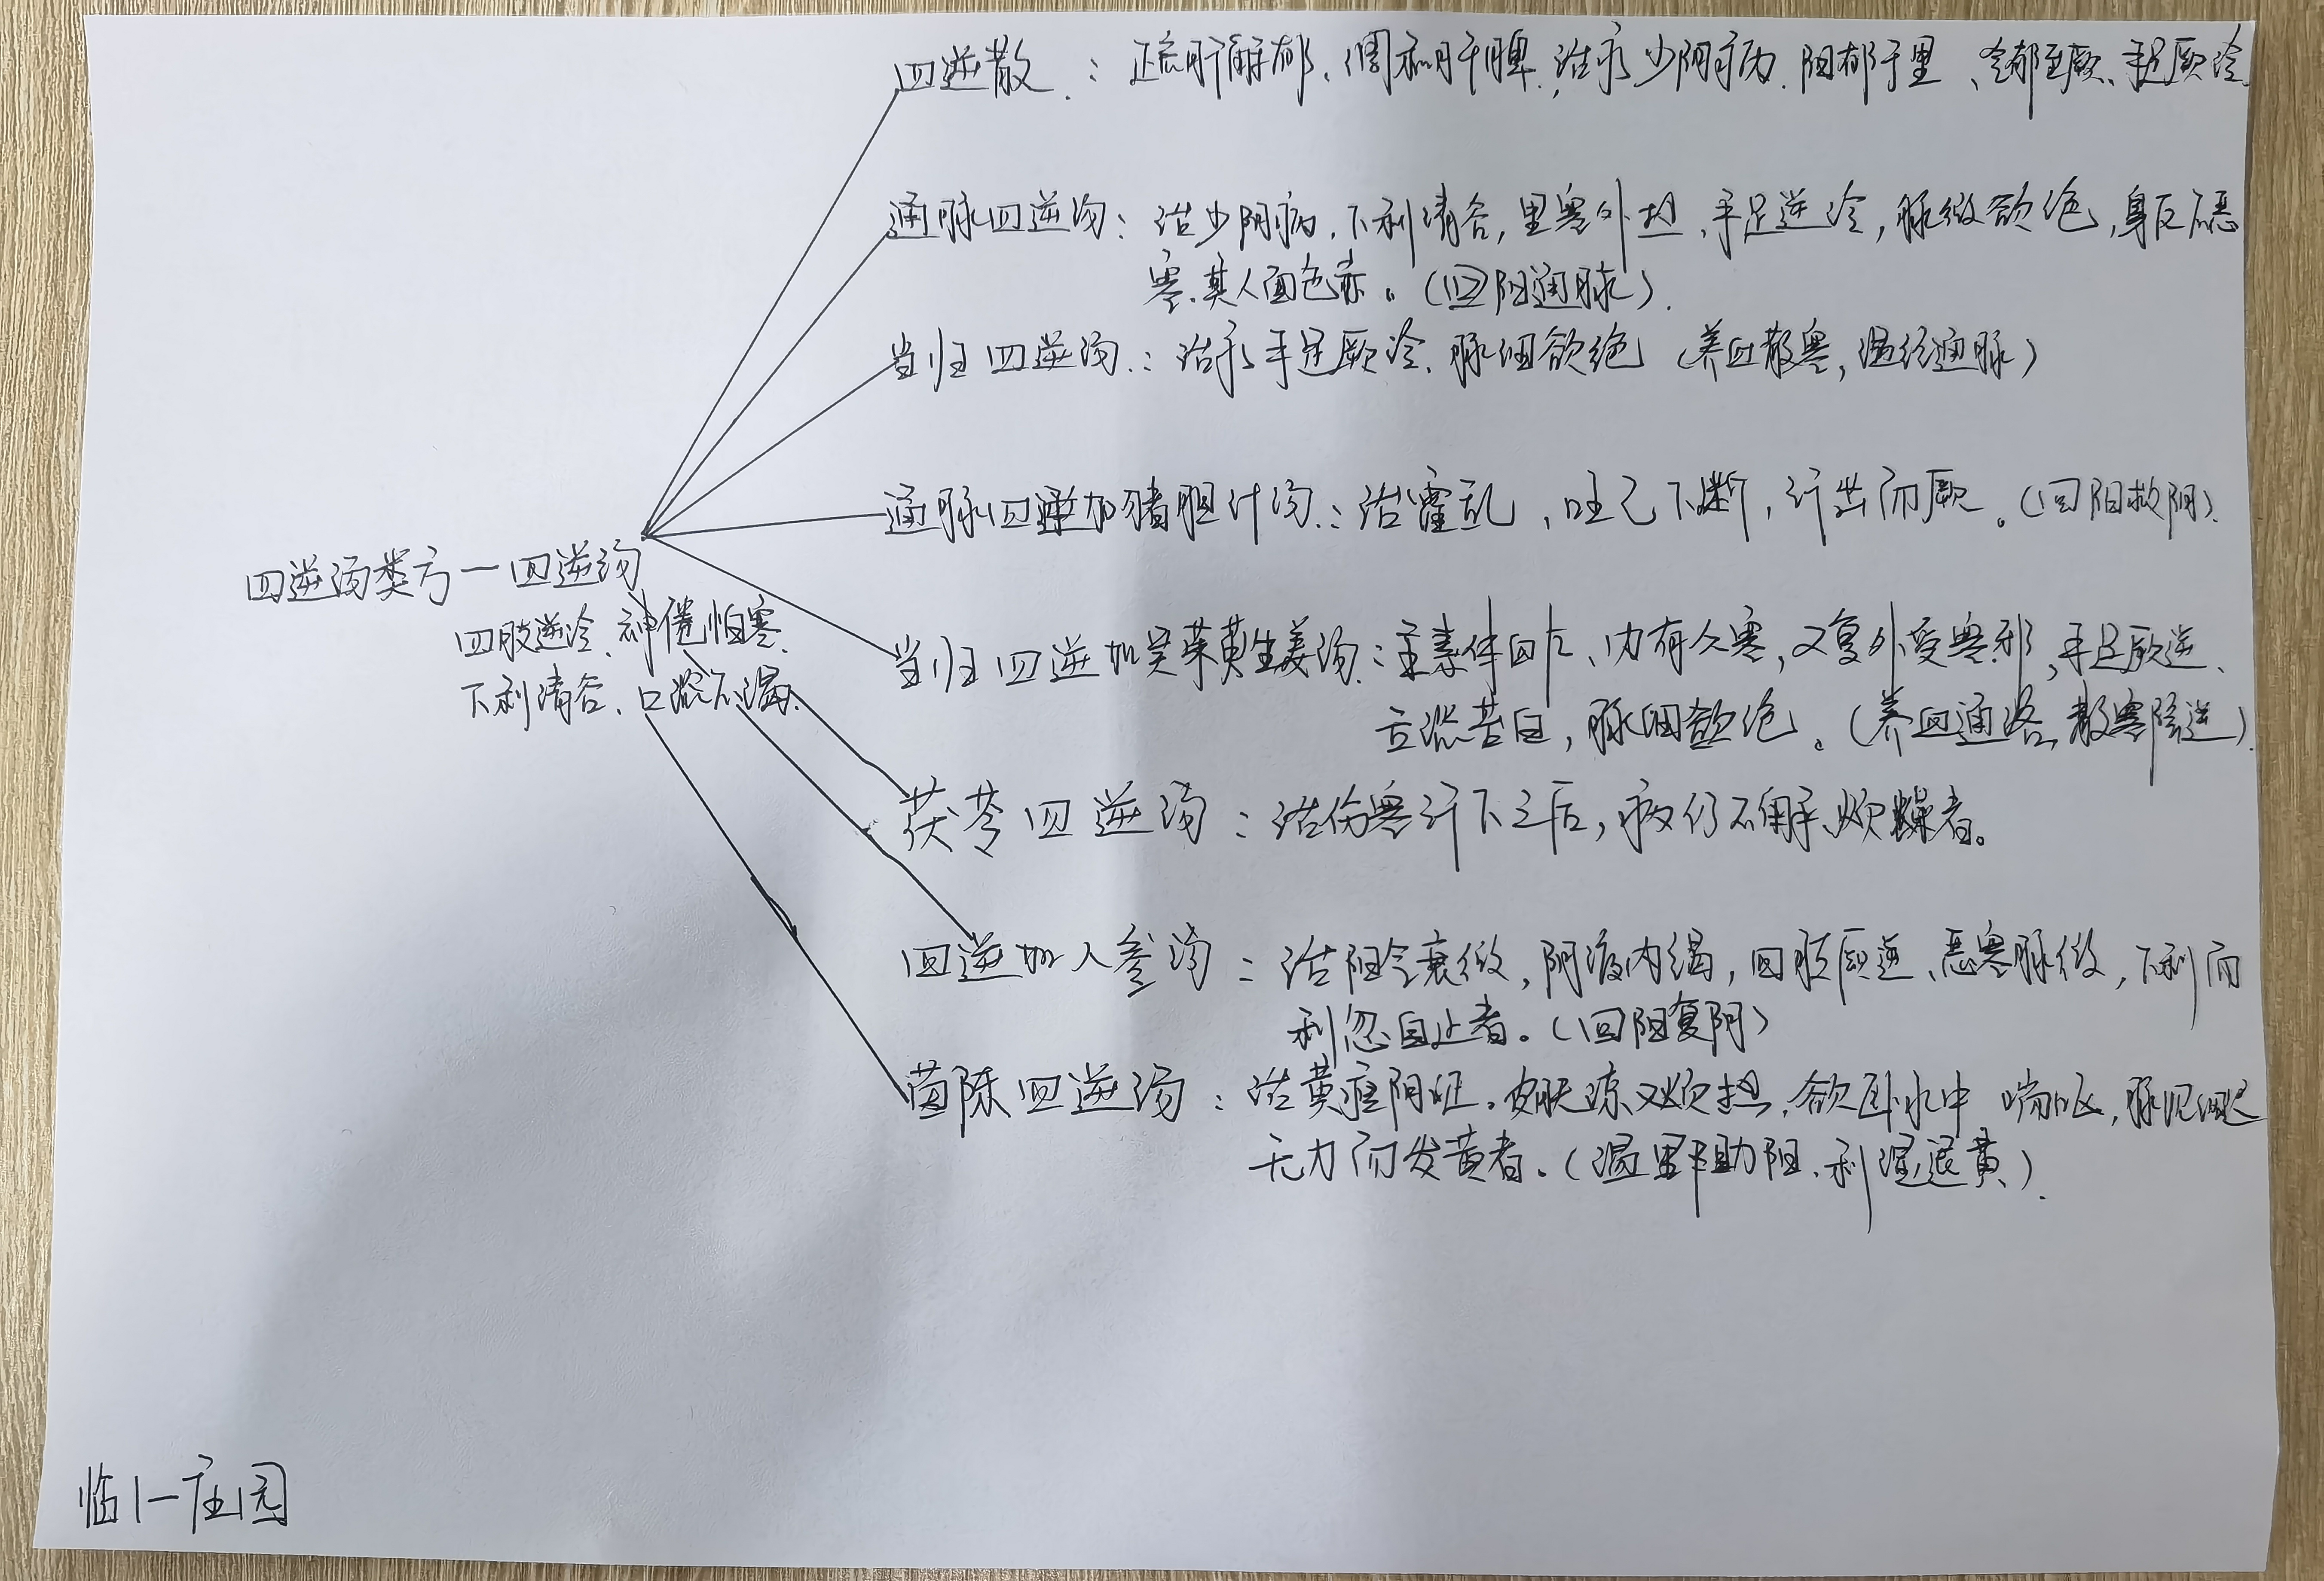 四逆散：疏肝解郁、调和肝脾，治疗少阴病，阳郁于里、手足厥冷
通脉四逆汤：治少阴病，下利清谷，里寒外热，手足逆冷，脉微欲绝，身反不恶
寒，其人面色赤。（回阳通脉）
当归四逆汤：治疗手足厥冷、脉细欲绝（养血散寒，温经通脉）
通脉四逆加猪胆汁汤：治霍乱，吐已下断，汗出而厥。（回阳救阴）
四逆汤类方—四逆汤
四肢逆冷、神倦怕寒、
下利清谷、口淡不渴
当归四逆加吴茱萸生姜汤：主素体、内有久寒，又复外受寒邪，手足厥逆、
舌淡苔白，脉细欲绝。（养血通络，散寒降逆）
茯苓四逆汤：治伤寒汗下之后，病仍不解、烦躁者。
四逆加人参汤：治阳气衰微，阴液内竭，四肢厥逆、恶寒脉微，下利而
利忽自止者。（回阳复阴）
茵陈四逆汤：治黄疸阴证。皮肤凉又烦热，欲卧水中 喘呕，脉沉细迟
无力而发黄者。（温里助阳、利湿退黄）
临1一庄园